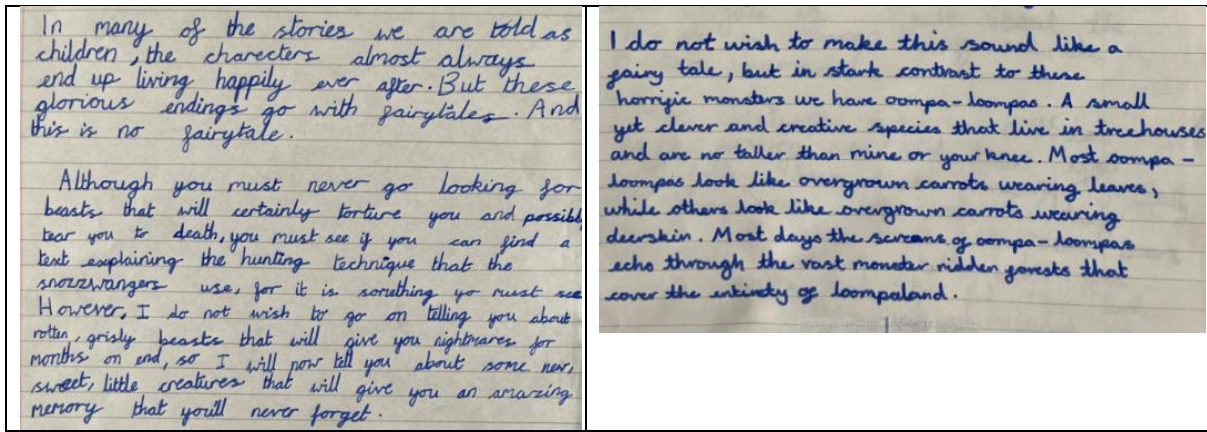 In many of the stories we are told as
children, the charecters almost always
end up living happily ever after. But these
glorious endings go with fairytales. And
this is no fairytale.
Although you must never go looking for
beasts that will certainly torture you and possibl
tear you to death, you must see if you can find a
text explaining the hunting technique that the
snozzwangers use, for it is something yo must see
However, I do not wish to go on telling you about
rotten, grisly beasts that will give you nightmares for
months on end, so I will now tell you about some new,
sweet, little creatures that will give you an amazing
memory that you'll never forget.
I do not wish to make this sound like a
fairy tale, but in stark contrast to these
horrific monsters we have oompa-loompas. A small
yet clever and creative species that live in treehouses
and are no taller than mine or your knee. Most oompa-
loompas look like overgrown carrots wearing leaves,
while others look like overgrown carrots wearing
deerskin. Most days the screams of oompa-loompas
echo through the vast monster ridden forests that
cover the entirety of loompaland.